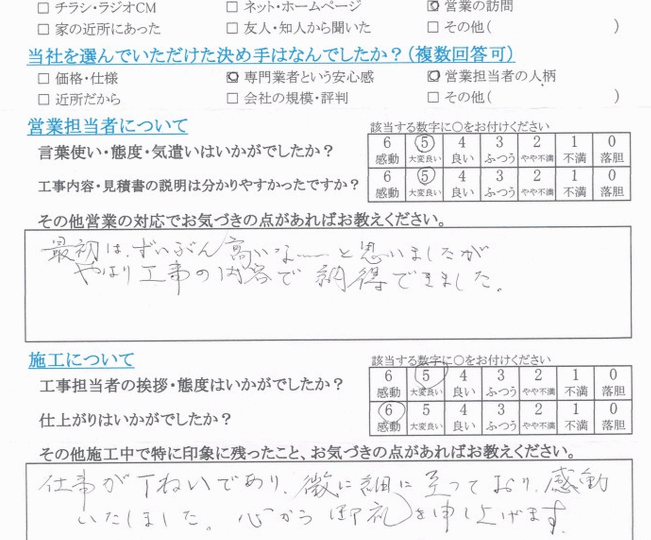 □ チラシ・ラジオCM □ ネット・ホームページ □ 営業の訪問
□ 家の近所にあった □ 友人・知人から聞いた □ その他( )
当社を選んでいただけた決め手はなんでしたか?(複数回答可)
□ 価格・仕様 □ 専門業者という安心感 □ 営業担当者の人柄
□ 近所だから □ 会社の規模・評判 □ その他( )
営業担当者について 該当する数字に○をお付けください
言葉使い・態度・気遣いはいかがでしたか? 6 5 4 3 2 1 0
感動 大変良い 良い ふつう やや不満 不満 落胆
工事内容・見積書の説明は分かりやすかったですか? 6 5 4 3 2 1 0
感動 大変良い 良い ふつう やや不満 不満 落胆
その他営業の対応でお気づきの点があればお教えください。
最初は、ずいぶん高いなーーと思いましたが
やはり工事の内容で納得できました。
施工について 該当する数字に○をお付けください
工事担当者の挨拶・態度はいかがでしたか? 6 5 4 3 2 1 0
感動 大変良い 良い ふつう やや不満 不満 落胆
仕上がりはいかがでしたか? 6 5 4 3 2 1 0
感動 大変良い 良い ふつう やや不満 不満 落胆
その他施工中で特に印象に残ったこと、お気づきの点があればお教えください。
仕事が丁ねいであり、微に細に至っており、感動
いたしました。心から御礼を申し上げます。